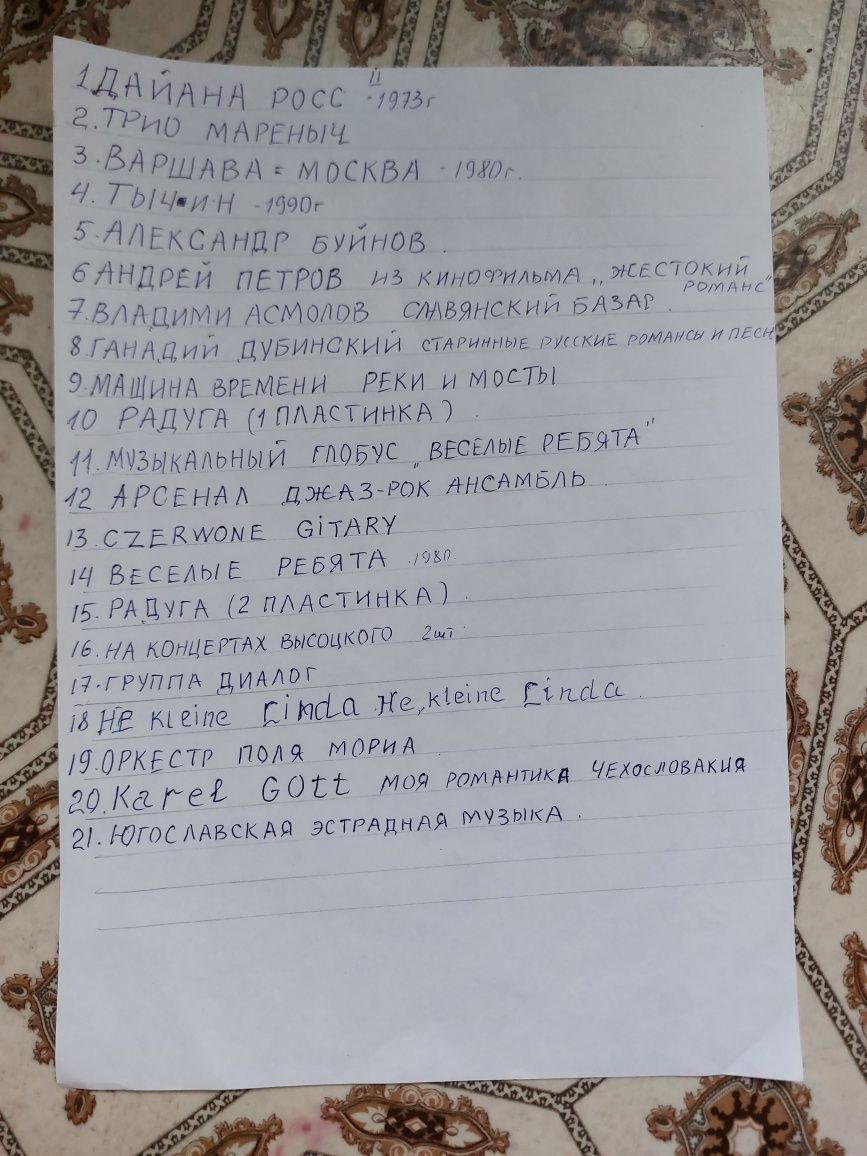 1 ДАЙАНА РОСС II - 1973г
2. ТРИО МАРЕНЫЧ
3. ВАРШАВА = МОСКВА - 1980г.
4. ТЫЧ ИН - 1990г
5. АЛЕКСАНДР БУЙНОВ.
6 АНДРЕЙ ПЕТРОВ ИЗ КИНОФИЛЬМА „ЖЕСТОКИЙ
РОМАНС"
7. ВЛАДИМИ АСМОЛОВ СЛАВЯНСКИЙ БАЗАР.
8. ГАНАДИЙ ДУБИНСКИЙ СТАРИННЫЕ РУССКИЕ РОМАНСЫ И ПЕСН
9. МАШИНА ВРЕМЕНИ РЕКИ И МОСТЫ
10 РАДУГА (1 ПЛАСТИНКА).
11. МУЗЫКАЛЬНЫЙ ГЛОБУС „ВЕСЕЛЫЕ РЕБЯТА"
12 АРСЕНАЛ ДЖАЗ-РОК АНСАМБЛЬ.
13. CZERWONE GiTARY
14 ВЕСЕЛЫЕ РЕБЯТА 1980.
15. РАДУГА (2 ПЛАСТИНКА).
16. НА КОНЦЕРТАХ ВЫСОЦКОГО 2шт.
17. ГРУППА ДИАЛОГ
18 HE Kleine Linda He, kleine Linda.
19. ОРКЕСТР ПОЛЯ МОРИА.
20. Karel GOtt МОЯ РОМАНТИКА ЧЕХОСЛОВАКИЯ
21. ЮГОСЛАВСКАЯ ЭСТРАДНАЯ МУЗЫКА.